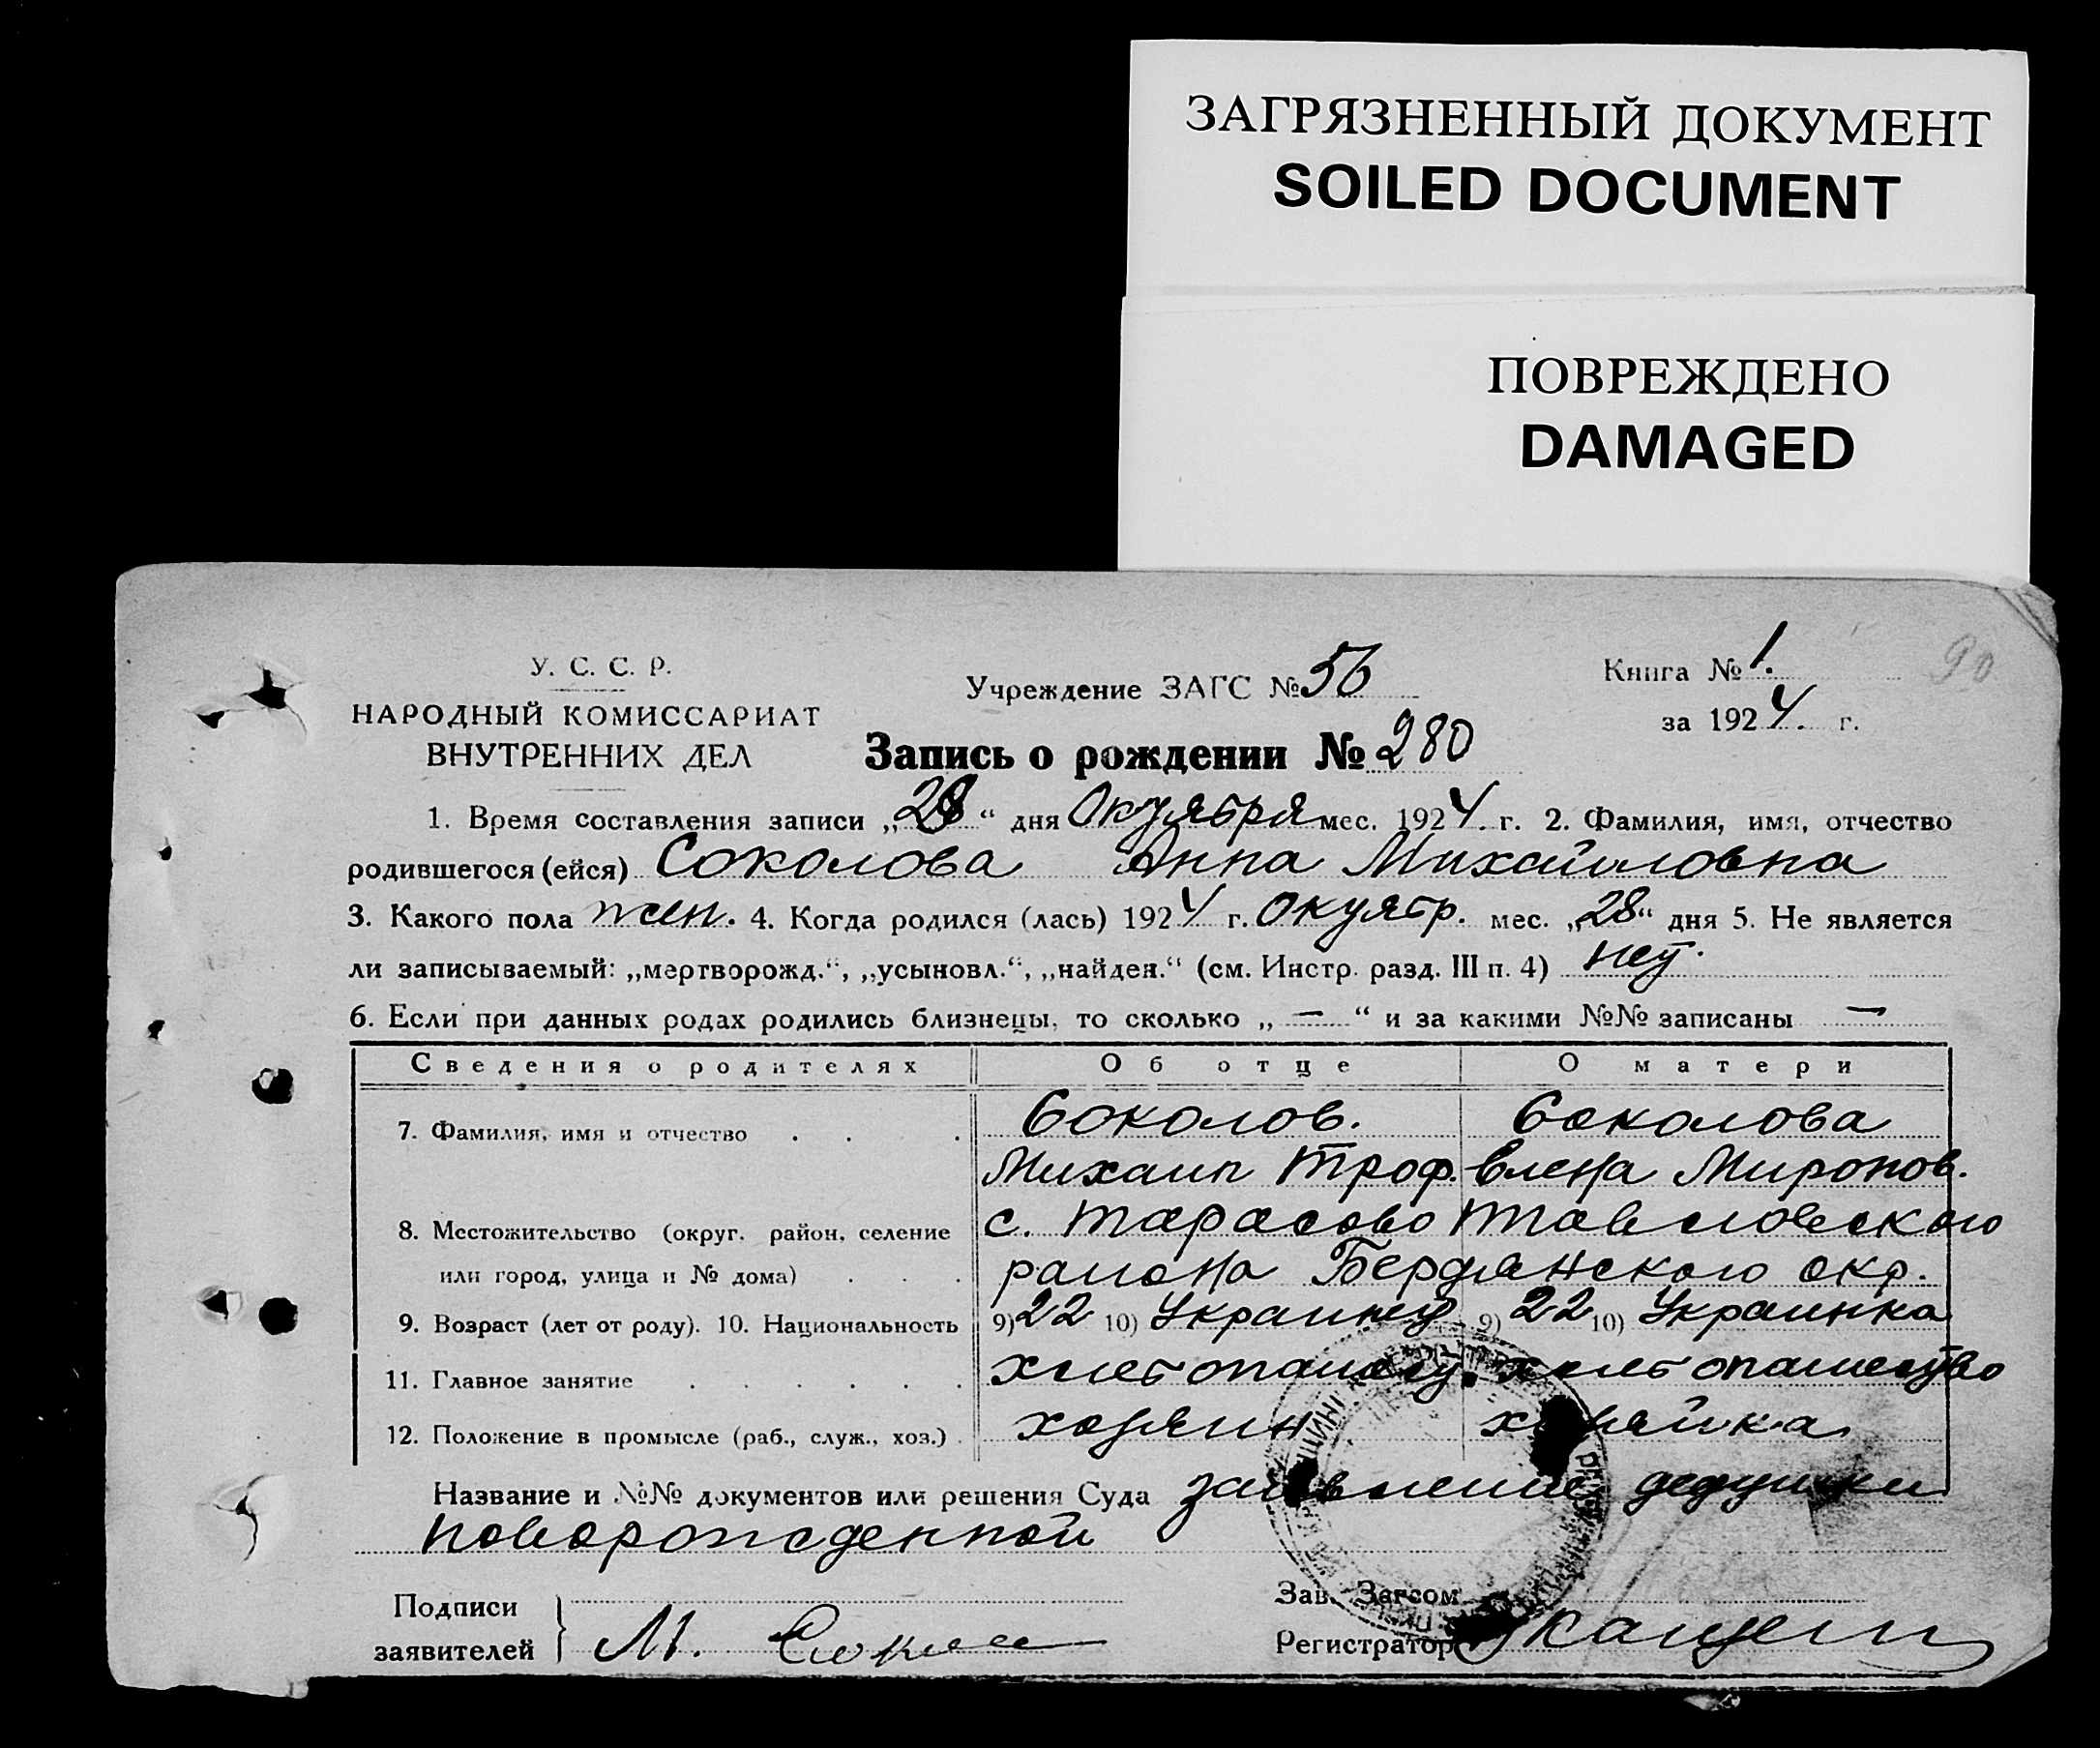 ЗАГРЯЗНЕННЫЙ ДОКУМЕНТ
SOILED DOCUMENT
ПОВРЕЖДЕНО
DAMAGED
90
У. С. С. Р.
НАРОДНЫЙ КОМИССАРИАТ
ВНУТРЕННИХ ДЕЛ
Учреждение ЗАГС № 56
Книга № 1.
за 1924. г.
Запись о рождении № 280
1. Время составления записи „28“ дня Октября мес. 1924. г. 2. Фамилия, имя, отчество
родившегося (ейся) Соколова Анна Михайловна
3. Какого пола жен. 4. Когда родился (лась) 1924 г. октябр. мес. „28“ дня 5. Не является
ли записываемый: „мертворожд.“, „усыновл.“, „найден.“ (см. Инстр. разд. III п. 4) нет.
6. Если при данных родах родились близнецы, то сколько „ — “ и за какими №№ записаны —
Сведения о родителях Об отце О матери
7. Фамилия, имя и отчество Соколов. Соколова
Михаил Троф. Елена Миронов.
8. Местожительство (округ, район, селение с. Тарасово
или город, улица и № дома) района Бердянского окр.
9. Возраст (лет от роду). 10. Национальность 9) 22 10) Украинец 9) 22 10) Украинка
11. Главное занятие хлебопашест. хлебопашество
12. Положение в промысле (раб., служ., хоз.) хозяин хозяйка
Название и №№ документов или решения Суда заявление дедушки
новорожденной
Подписи
заявителей М.
Зав. Загсом
Регистратор